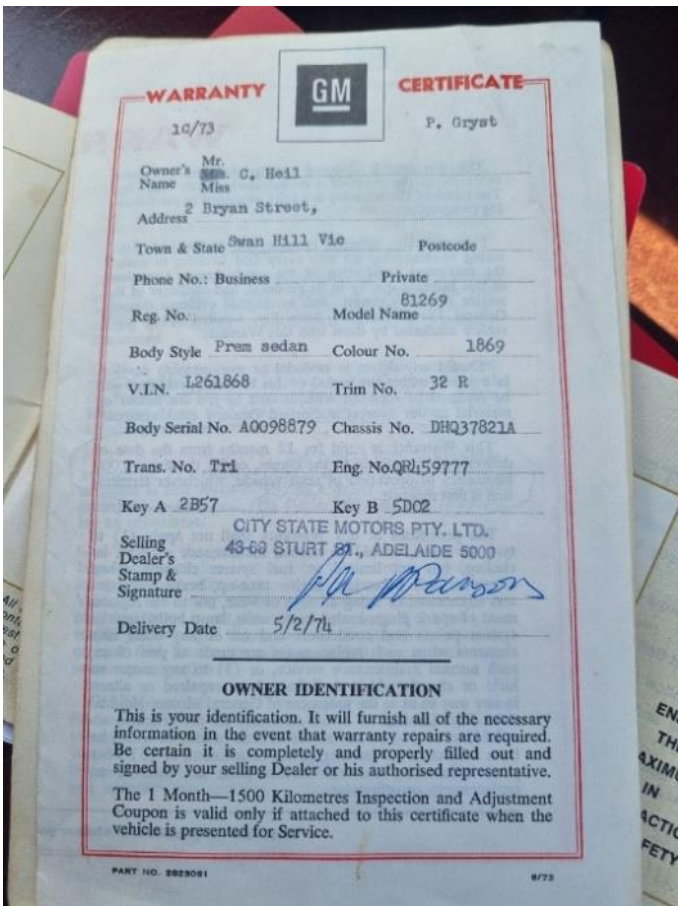 WARRANTY GM CERTIFICATE
10/73 P. Gryst
Owner's Name Mr. Miss C. Heil
Address 2 Bryan Street,
Town & State Swan Hill Vic Postcode
Phone No.: Business Private
Reg. No. Model Name 81269
Body Style Prem sedan Colour No. 1869
V.I.N. L261868 Trim No. 32 R
Body Serial No. A0098879 Chassis No. DHQ37821A
Trans. No. Tri Eng. No. QR459777
Key A 2B57 Key B 5D02
CITY STATE MOTORS PTY. LTD.
Selling
Dealer's 43-69 STURT ST., ADELAIDE 5000
Stamp &
Signature
Delivery Date 5/2/74
OWNER IDENTIFICATION
This is your identification. It will furnish all of the necessary
information in the event that warranty repairs are required.
Be certain it is completely and properly filled out and
signed by your selling Dealer or his authorised representative.
The 1 Month—1500 Kilometres Inspection and Adjustment
Coupon is valid only if attached to this certificate when the
vehicle is presented for Service.
PART NO. 2823091 8/73